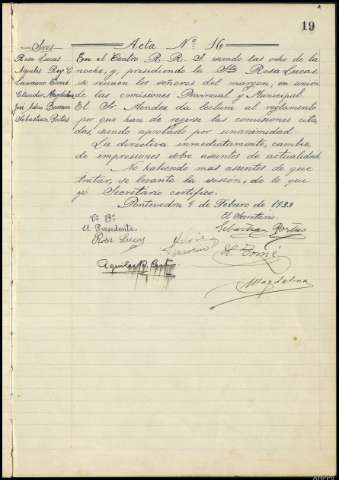 19
Acta Nº 16
Sres
Rosa Lucas
Aquiles Rey C
Laureano Tomé
Claudio Magdalena
José Adrio Barreiro
Sebastian Portas
En el Centro R. R. S. siendo las ocho de la
noche, y presidiendo la Sta Rosa Lucas,
se reunen los señores del margen, en union
de las comisiones Provincial y Municipal.
El Sr. Mendez da lectura al reglamento
por que han de regirse las comisiones cita
das siendo aprobado por unanimidad.
La directiva inmediatamente, cambia
de impresiones sobre asuntos de actualidad.
No habiendo mas asuntos de que
tratar, se levanta la sesion, de lo que
yo Secretario certifico.
Pontevedra 9 de Febrero de 1932
Vº Bº
El Presidente
Rosa Lucas
El Secretario
Sebastian Portas
L. Tomé
Aquiles R. Castro
Magdalena